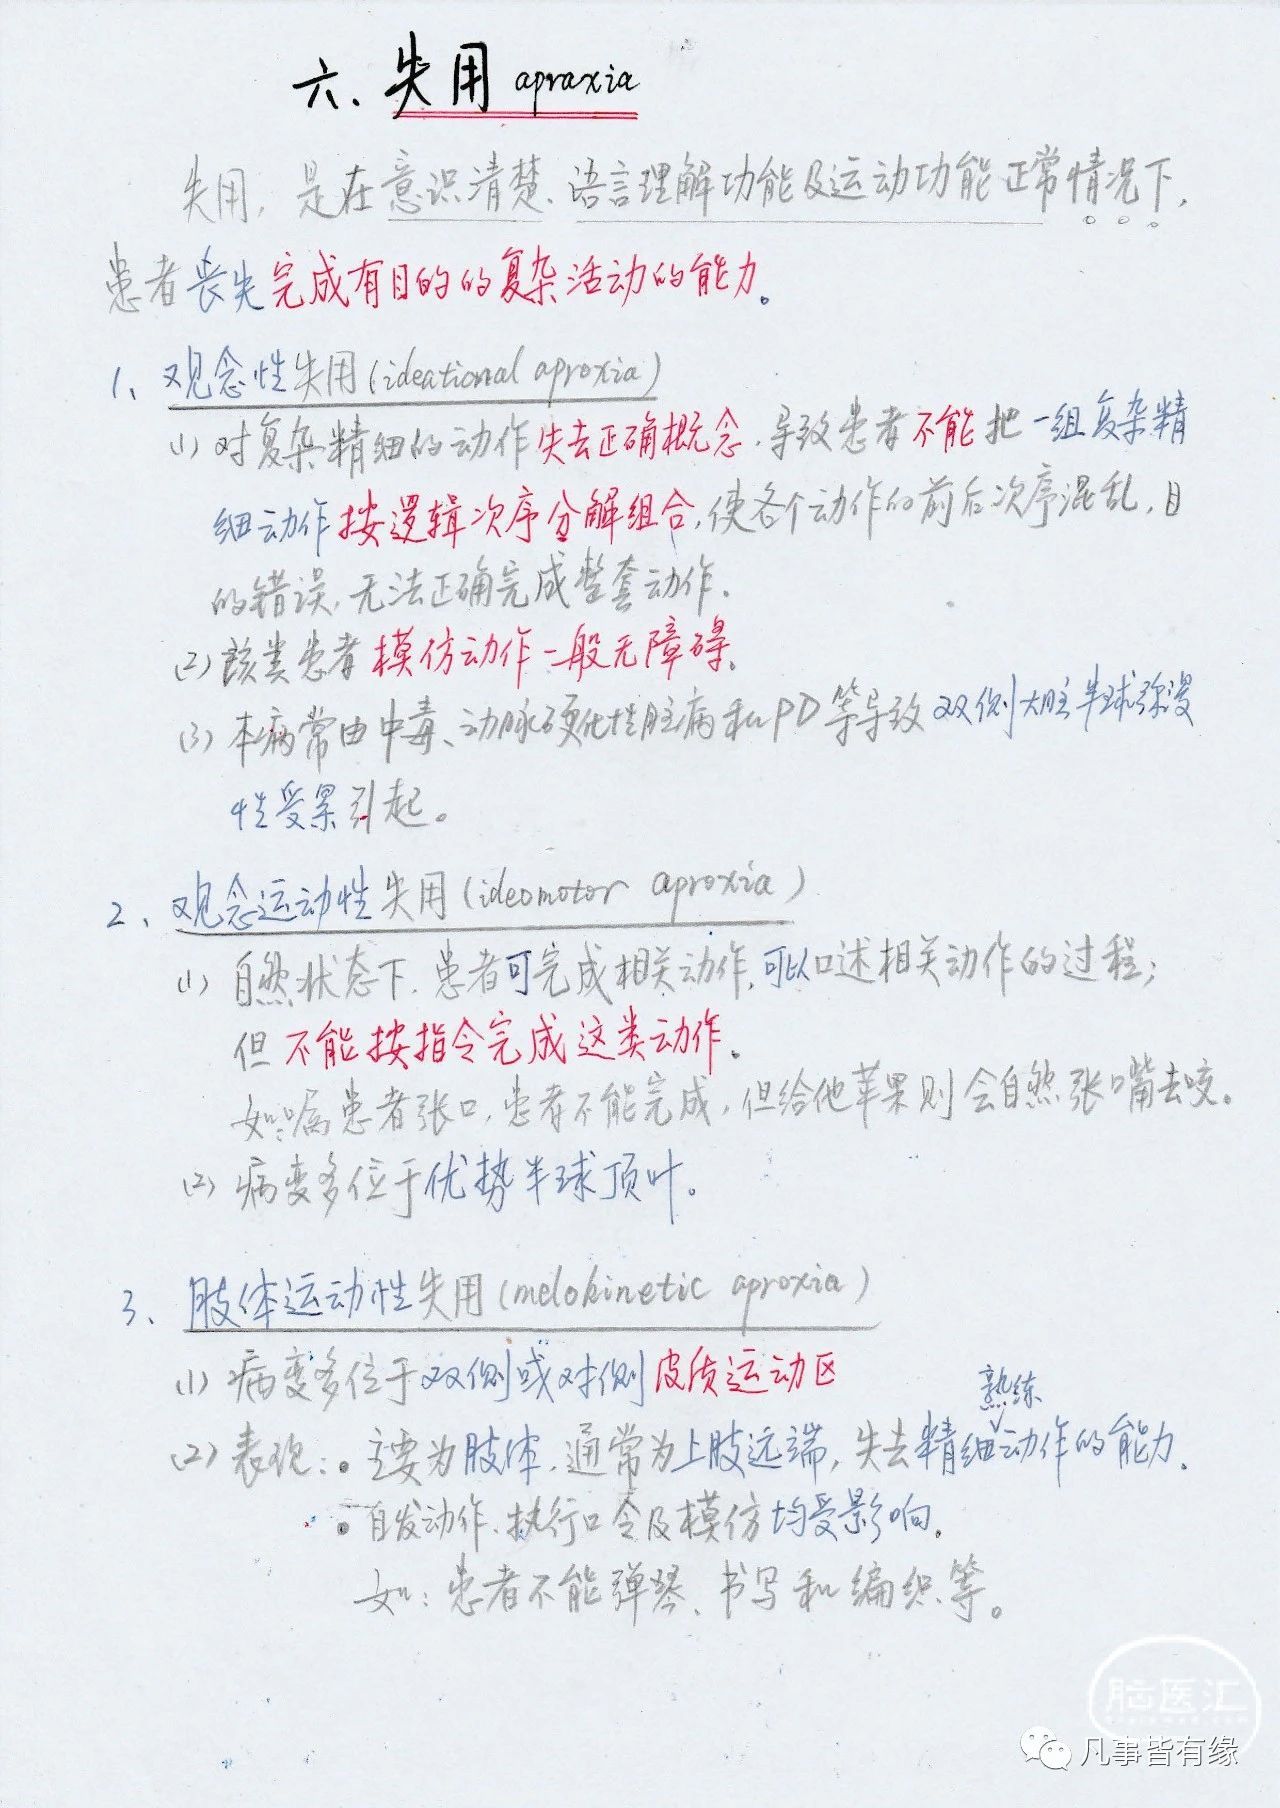 六、失用 apraxia
失用，是在意识清楚、语言理解功能及运动功能正常情况下，
患者丧失完成有目的的复杂活动的能力。
1、观念性失用(ideational aproxia)
(1) 对复杂精细的动作失去正确概念，导致患者不能把一组复杂精
细动作按逻辑次序分解组合，使各个动作的前后次序混乱，目
的错误，无法正确完成整套动作。
(2) 该类患者模仿动作一般无障碍。
(3) 本病常由中毒、动脉硬化性脑病和PD等导致双侧大脑半球弥漫
性受累引起。
2、观念运动性失用(ideomotor aproxia)
(1) 自然状态下，患者可完成相关动作，可以口述相关动作的过程；
但不能按指令完成这类动作。
如：嘱患者张口，患者不能完成，但给他苹果则会自然张嘴去咬。
(2) 病变多位于优势半球顶叶。
3、肢体运动性失用(melokinetic aproxia)
(1) 病变多位于双侧或对侧皮质运动区
熟练
(2) 表现：• 主要为肢体，通常为上肢远端，失去精细动作的能力。
• 自发动作、执行口令及模仿均受影响。
如：患者不能弹琴、书写和编织等。
脑医汇
凡事皆有缘